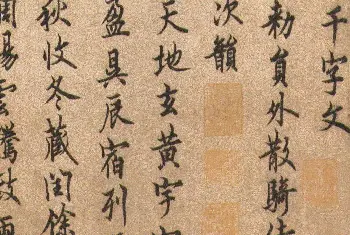 千字文
勑員外散騎侍
次韻
天地玄黃宇
盈昃辰宿列
秋收冬藏閏餘
雲騰致雨